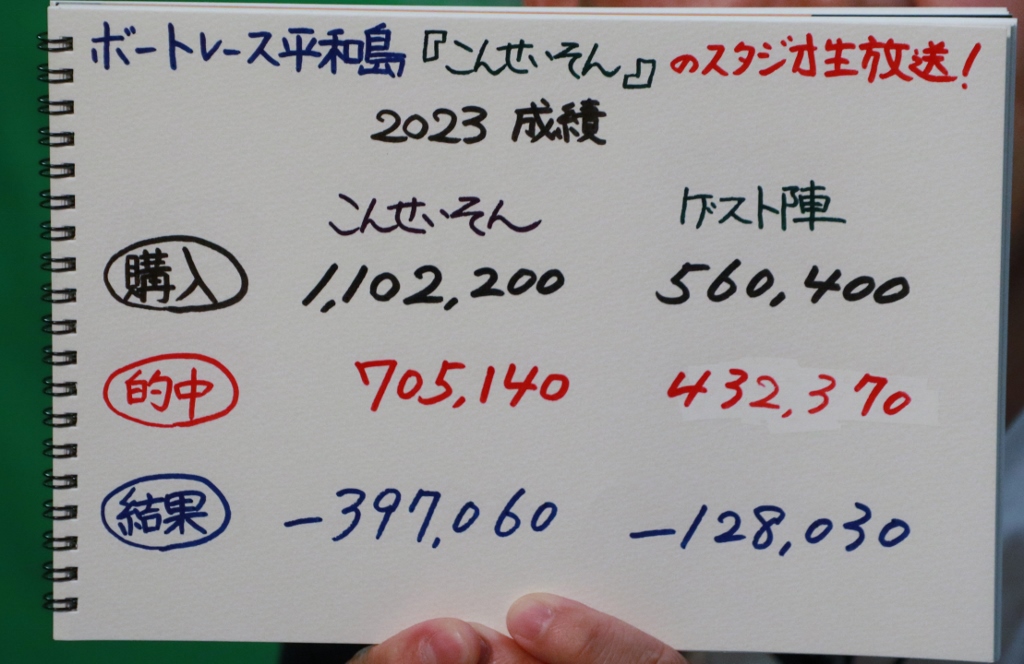 ボートレース平和島『こんせいそん』のスタジオ生放送!
2023 成績
こんせいそん ゲスト陣
購入 1,102,200 560,400
的中 705,140 432,370
結果 -397,060 -128,030